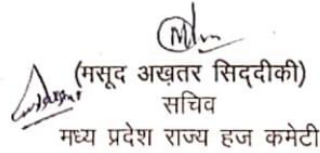 (मसूद अख़तर सिद्दीकी)
सचिव
मध्य प्रदेश राज्य हज कमेटी